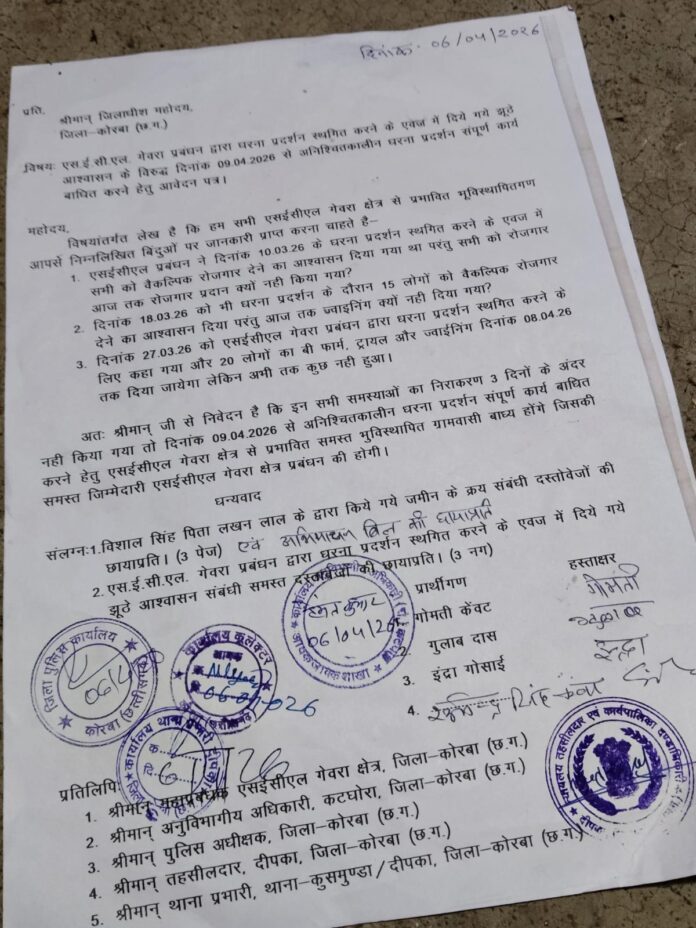 दिनांक- 06/04/2026
प्रति,
श्रीमान् जिलाधीश महोदय,
जिला–कोरबा (छ.ग.)
विषयः एस.ई.सी.एल. गेवरा प्रबंधन द्वारा धरना प्रदर्शन स्थगित करने के एवज में दिये गये झूठे
आश्वासन के विरुद्ध दिनांक 09.04.2026 से अनिश्चितकालीन धरना प्रदर्शन संपूर्ण कार्य
बाधित करने हेतु आवेदन पत्र।
महोदय,
विषयांतर्गत लेख है कि हम सभी एसईसीएल गेवरा क्षेत्र से प्रभावित भूविस्थापितगण
आपसे निम्नलिखित बिंदुओं पर जानकारी प्राप्त करना चाहते है–
1. एसईसीएल प्रबंधन ने दिनांक 10.03.26 के धरना प्रदर्शन स्थगित करने के एवज में
सभी को वैकल्पिक रोजगार देने का आश्वासन दिया गया था परंतु सभी को रोजगार
आज तक रोजगार प्रदान क्यों नही किया गया?
2. दिनांक 18.03.26 को भी धरना प्रदर्शन के दौरान 15 लोगों को वैकल्पिक रोजगार
देने का आश्वासन दिया परंतु आज तक ज्वाइनिंग क्यों नही दिया गया?
3. दिनांक 27.03.26 को एसईसीएल गेवरा प्रबंधन द्वारा धरना प्रदर्शन स्थगित करने के
लिए कहा गया और 20 लोगों का बी फार्म, ट्रायल और ज्वाईनिंग दिनांक 08.04.26
तक दिया जायेगा लेकिन अभी तक कुछ नही हुआ।
अतः श्रीमान् जी से निवेदन है कि इन सभी समस्याओं का निराकरण 3 दिनों के अंदर
नही किया गया तो दिनांक 09.04.2026 से अनिश्चितकालीन धरना प्रदर्शन संपूर्ण कार्य बाधित
करने हेतु एसईसीएल गेवरा क्षेत्र से प्रभावित समस्त भुविस्थापित ग्रामवासी बाध्य होंगे जिसकी
समस्त जिम्मेदारी एसईसीएल गेवरा क्षेत्र प्रबंधन की होगी।
धन्यवाद
संलग्नः1.विशाल सिंह पिता लखन लाल के द्वारा किये गये जमीन के क्रय संबंधी दस्तोवेजों की
छायाप्रति। (3 पेज) एवं की छायाप्रति
2. एस.ई.सी.एल. गेवरा प्रबंधन द्वारा धरना प्रदर्शन स्थगित करने के एवज में दिये गये
झूठे आश्वासन संबंधी समस्त दस्तावेजों की छायाप्रति। (3 नग)
प्रार्थीगण हस्ताक्षर
गोमती केंवट गोमती
2. गुलाब दास
3. इंद्रा गोसाई इन्द्रा
4.
आवक जावक शाखा
06/04/26
जिला पुलिस कार्यालय
कोरबा (छत्तीसगढ़)
कार्यालय कलेक्टर
आवक
कार्यालय थाना प्रभारी
कार्यालय तहसीलदार एवं कार्यपालिक दण्डाधिकारी
प्रतिलिपि
1. श्रीमान् महाप्रबंधक एसईसीएल गेवरा क्षेत्र, जिला–कोरबा (छ.ग.)
2. श्रीमान् अनुविभागीय अधिकारी, कटघोरा, जिला–कोरबा (छ.ग.)
3. श्रीमान् पुलिस अधीक्षक, जिला–कोरबा (छ.ग.)
4. श्रीमान् तहसीलदार, दीपका, जिला–कोरबा (छ.ग.)
5. श्रीमान् थाना प्रभारी, थाना–कुसमुण्डा/दीपका, जिला–कोरबा (छ.ग.)